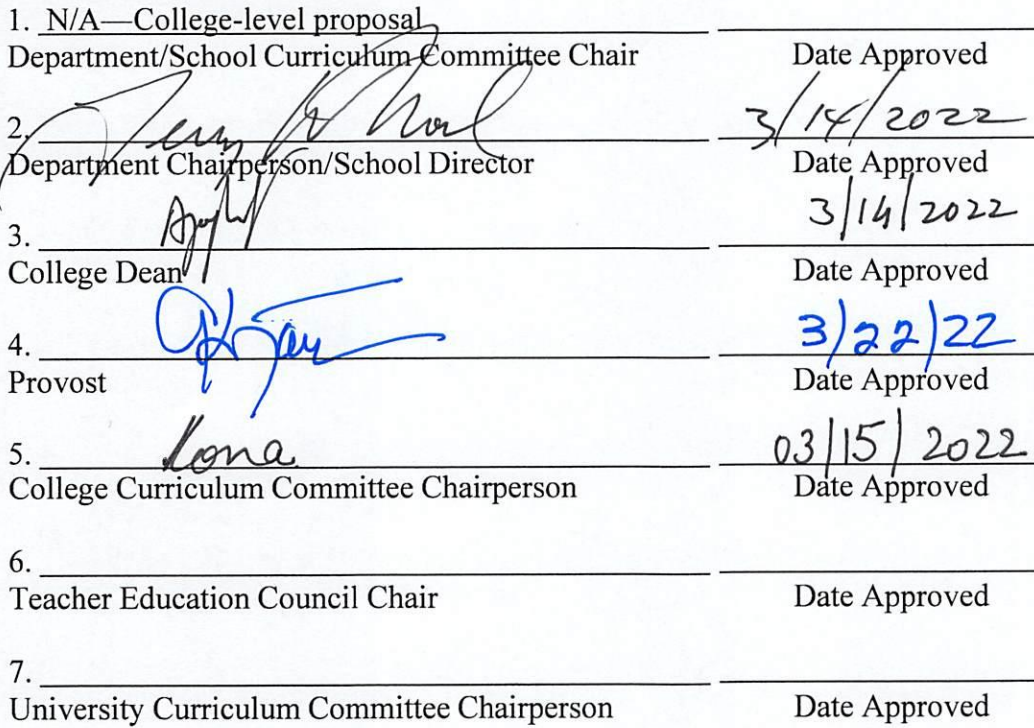 1. N/A—College-level proposal
Department/School Curriculum Committee Chair Date Approved
2. 3/14/2022
Department Chairperson/School Director Date Approved
3. 3/14/2022
College Dean Date Approved
4. 3/22/22
Provost Date Approved
5. Kona 03/15/2022
College Curriculum Committee Chairperson Date Approved
6.
Teacher Education Council Chair Date Approved
7.
University Curriculum Committee Chairperson Date Approved